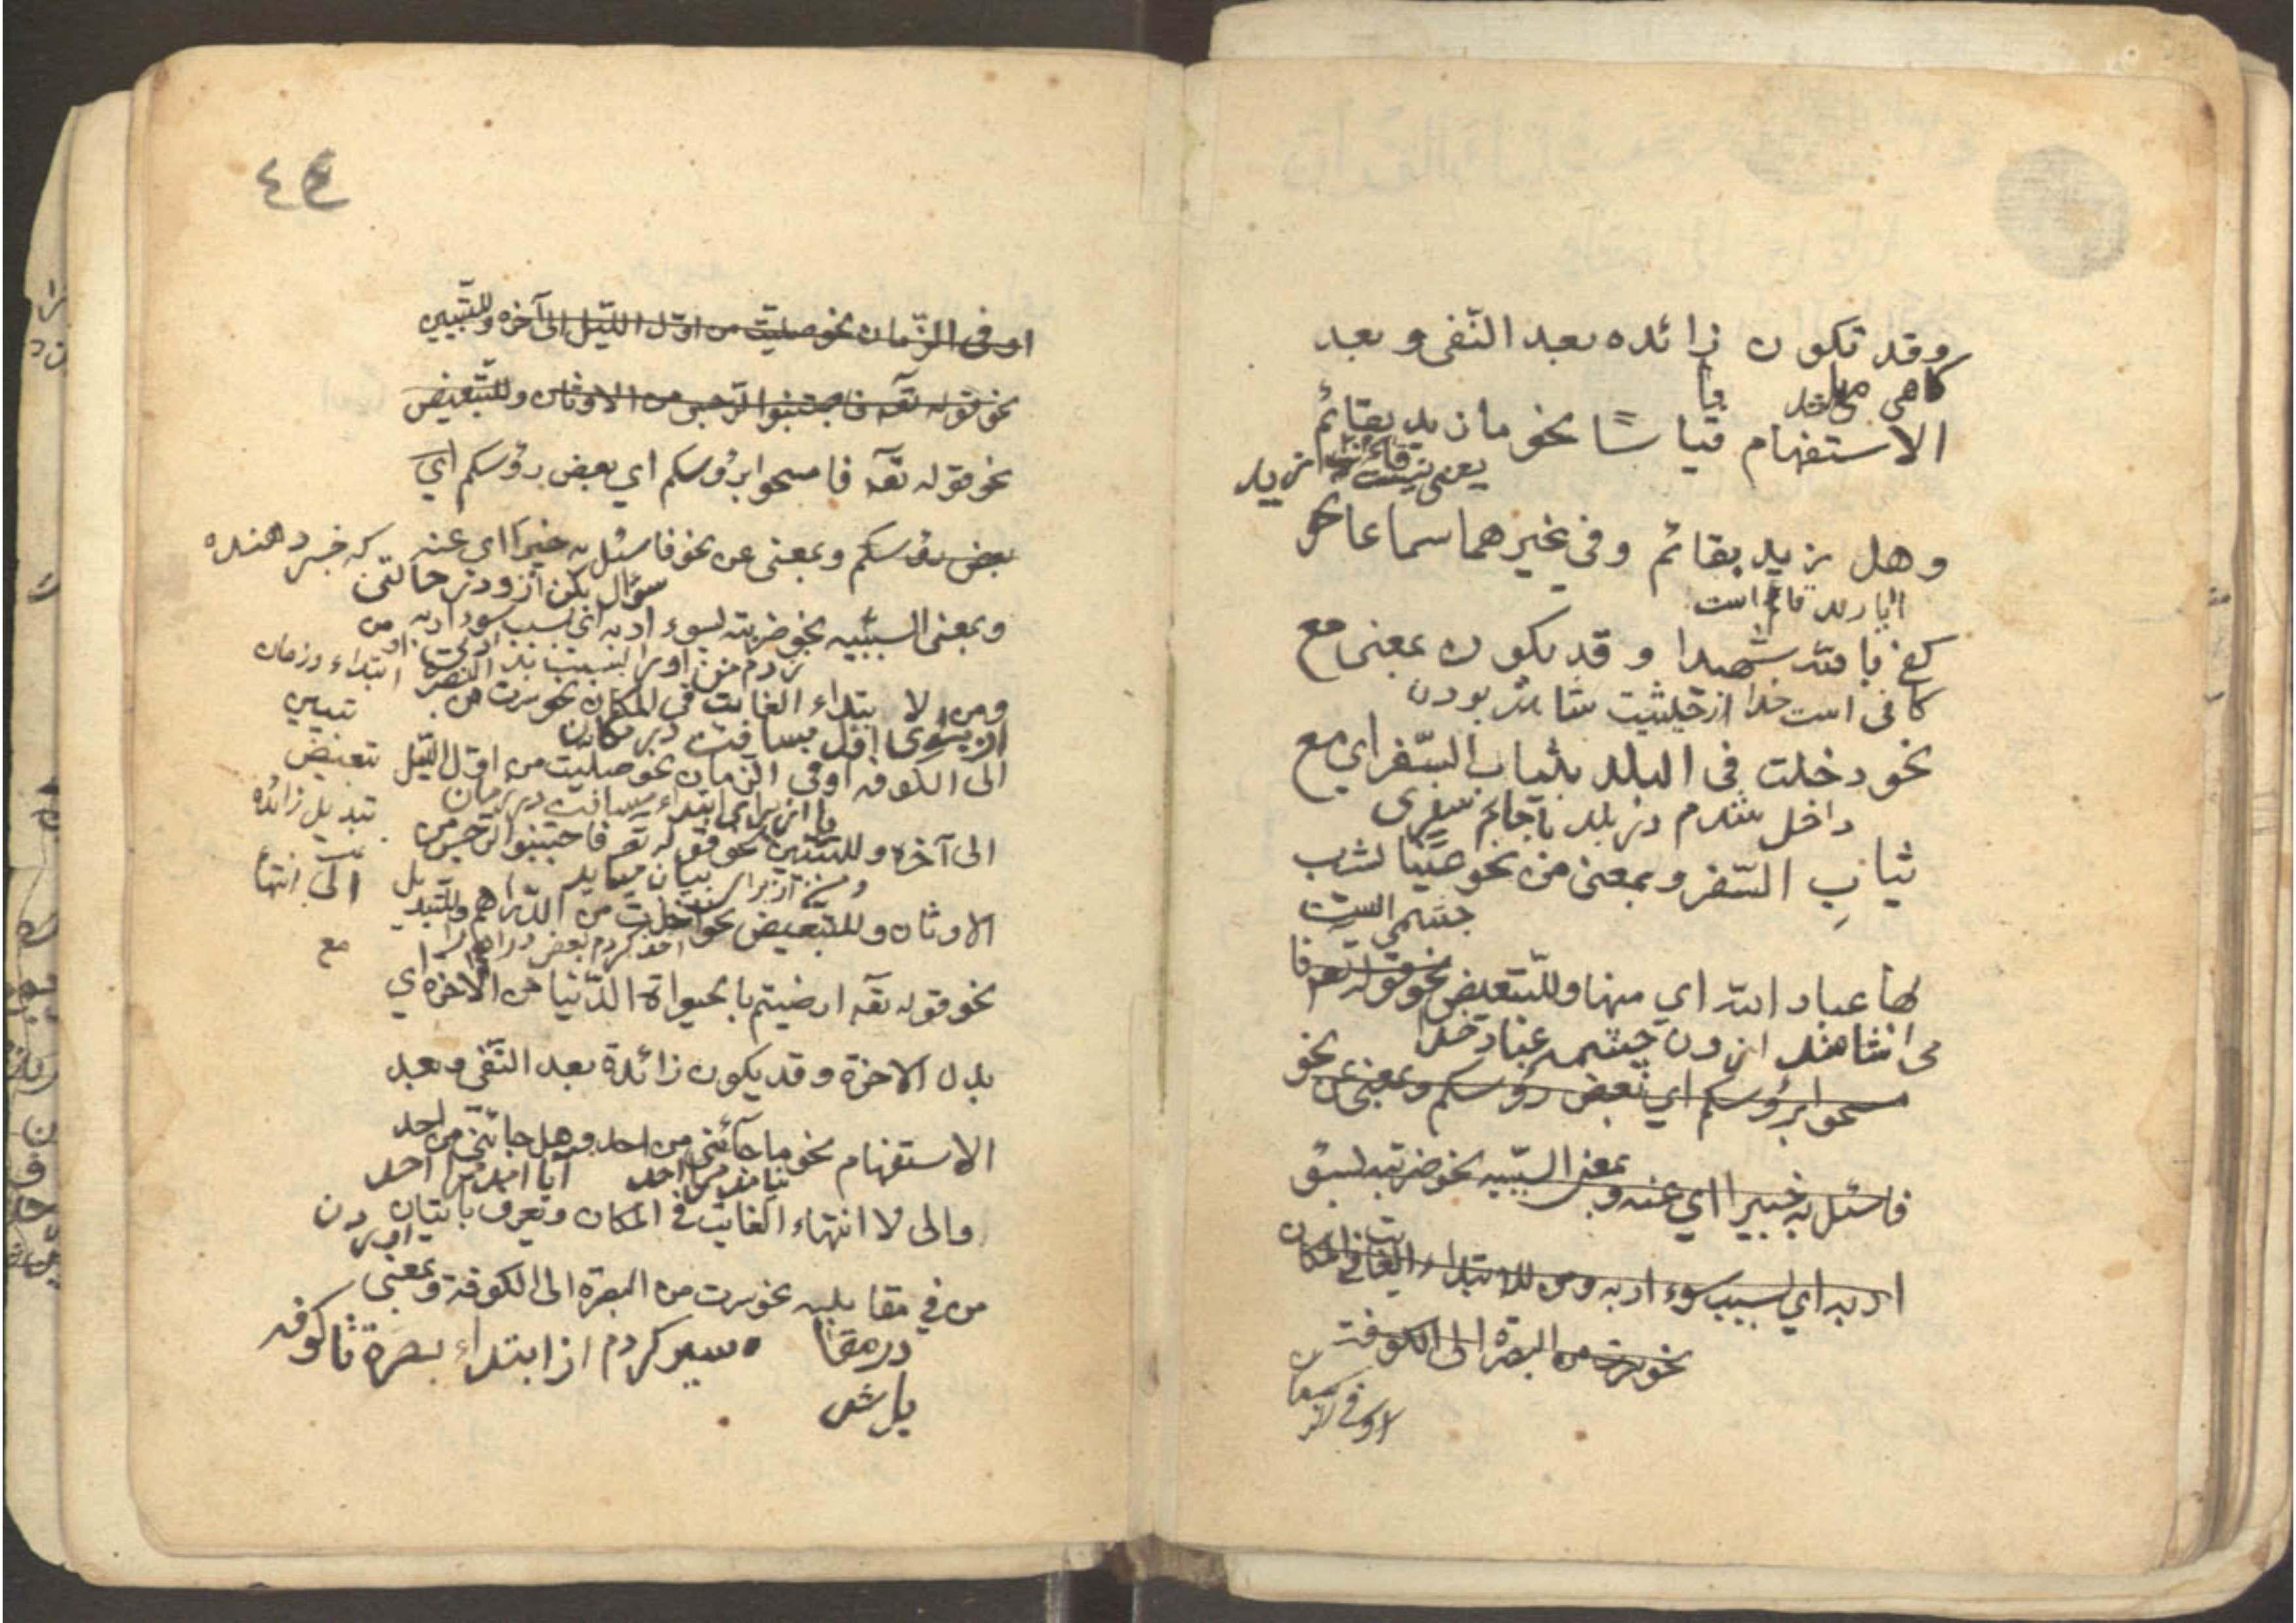 وقد تكون زائده بعد النّفى و بعد
كاهى ميباشد با
الاستفهام قياسًا نحو ما زيد بقائم
يعنى نيست قائم زيد
وهل زيد بقائم وفى غيرهما سماعا نحو
ايا زيد قائم است
كفى بالله شهيدا و قد يكون بمعنى مع
كافى است خدا از حيثيت شاهد بودن
نحو دخلت فى البلد بثياب السّفر اي مع
داخل شدم در بلد با جامه سفرى
ثيابِ السّفر و بمعنى من نحو عينًا يشرب
چشمه الست
بها عباد الله اي منها وللتّبعيض نحو قوله تعه فا
مى اشامند از ون چشمه عباد خدا
مسحوا برؤسكم اي بعض رؤسكم وبمعنى عن نحو
فاسئل به خبيرا اي عنه و بمعنى السّببيه نحو ضربته لسوء
ادبه اي لسبب سوء ادبه ومن للابتداء الغايت فى المكان
نحو سرت من البصرة الى الكوفت
او فى الزمان
٤٤
او فى الزّمان نحو صليت من اوّل اللّيل الى آخره وللتّبيين
نحو قوله تعه فاجتنبوا الرّجس من الاوثان وللتّبعيض
نحو قوله تعه فامسحوا برؤسكم اي بعض رؤسكم اي
بعض رؤسكم وبمعنى عن نحو فاسئل به خبيرًا اي عنه
كه خبر دهنده
سؤال بكن از و در حالتى
وبمعنى السّببيه نحو ضربته لسوء ادبه اي لسبب سوء ادبه
من
زدم من اورا بسبب بد ادبى او
ابتداء در زمان
ومن لا بتداء الغايت فى المكان نحو سرت من البصرة
تبيين
مسافت در مكان
الى الكوفه او فى الزمان نحو صليت من اوّل اللّيل
تبعيض
از براى ابتداء مسافت در زمان
تبديل زائده
الى آخره وللتّبيين نحو قوله تعه فاجتنبوا الرّجس من
از براى بيان ميايد
الى انتهأ
الاوثان وللتّبعيض نحو اخذت من الدّراهم وللتّبديل
اخذ كردم بعض دراهم را
مع
نحو قوله تعه ارضيتم بالحيواة الدّنيا من الآخره اي
بدل الاخرة و قد يكون زائدة بعد النّفى و بعد
الاستفهام نحو ما جآئنى من احد و هل جائنى من احد
نيامد مرا احد
آيا امد مرا احد
والى لا انتهاء الغايت فى المكان و تعرف باتيان
اوردن
من فى مقابليه نحو سرت من البصرة الى الكوفة وبمعنى
در مقا
سير كردم از ابتداء بصرة تا كوفه
بل ش